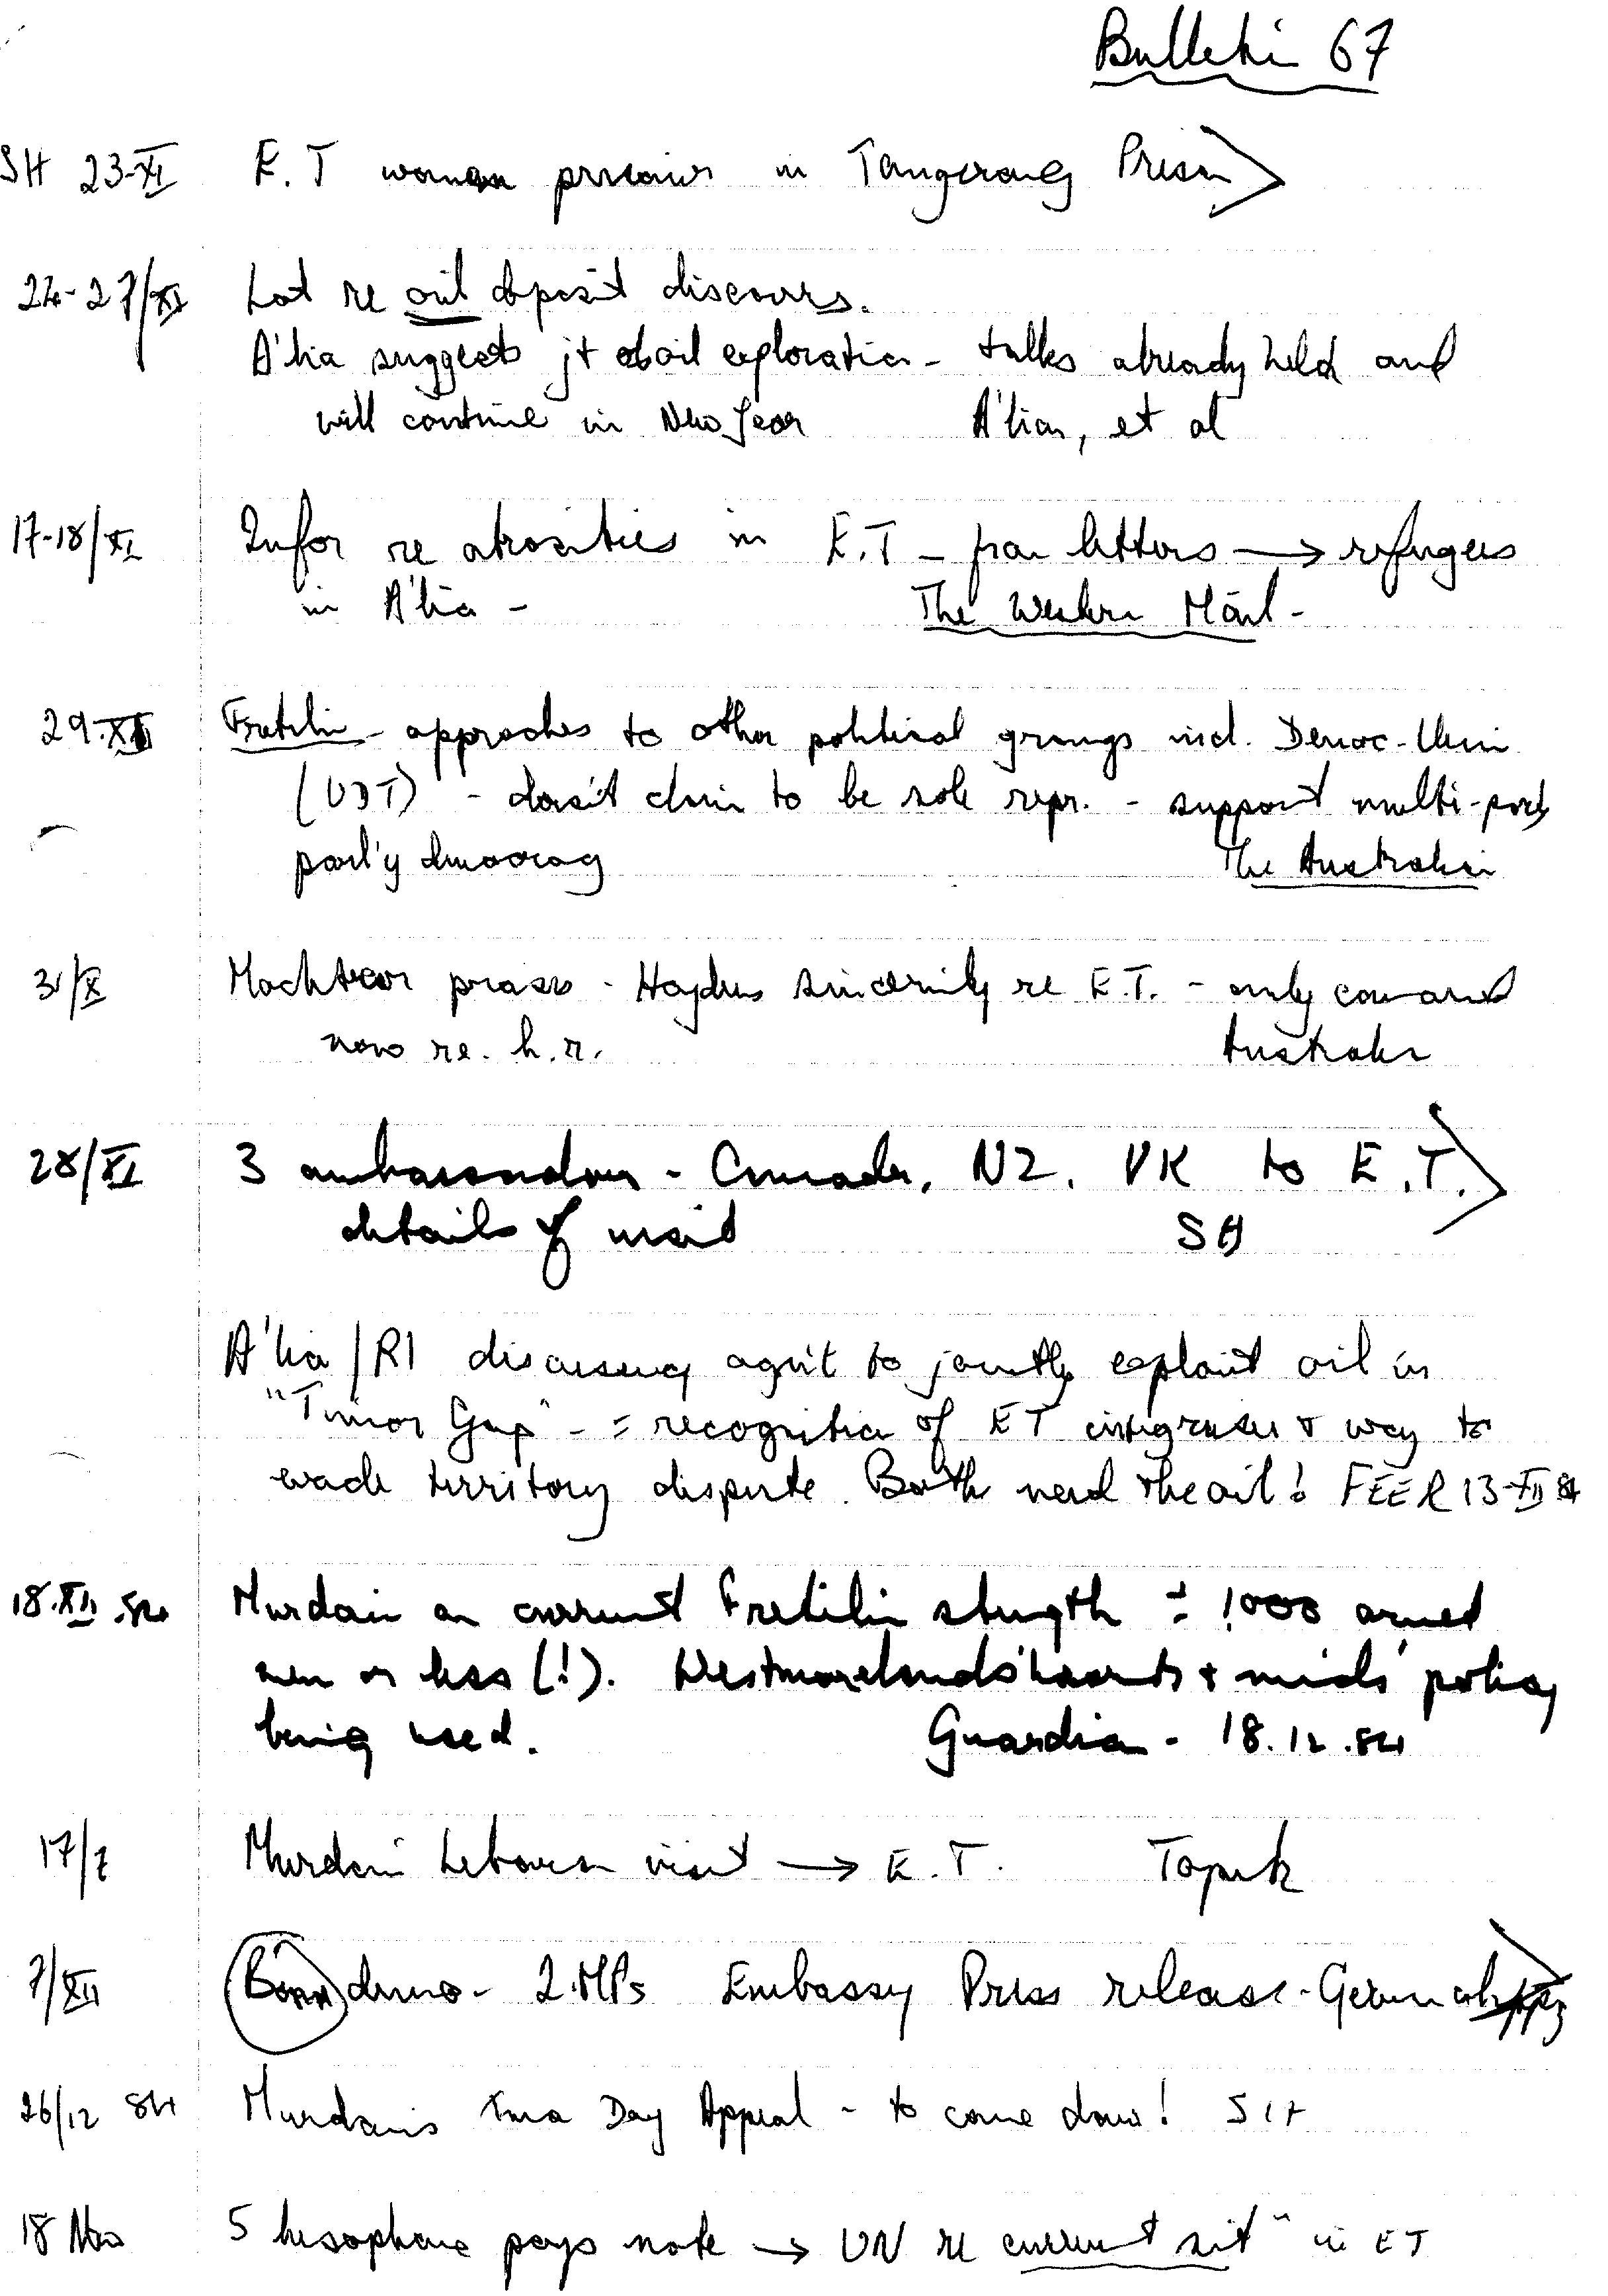 Bulletin 67
SH 23-XI E.T woman prisoners in Tangerang Prison
24-27/XI Lot re oil deposit discovers.
A'lia suggests jt oil exploration - talks already held and
will continue in New Year A'lian, et al
17-18/XI Infor re atrosities in E.T - from letters → refugees
in A'lia - The Western Mail -
29. Fretilin - approaches to other political groups incl. Democ-Union
(UDT) - doesn't claim to be sole repr. - support multi-party
parl'y democracy The Australian
31/X Mochtar praises Haydens sincerity re E.T. - only concerned
now re. h.r. Australian
28/XI 3 ambassadors - Canada, NZ, UK to E.T.
details of visit SH
A'lia/RI discussing agm't to jointly exploit oil in
"Timor Gap" - = recognition of ET integration & way to
evade territory dispute. Both need the oil! FEER 13-XII 84
18.XII.84 Murdani on current Fretilin strength ± 1000 armed
men or less (!). Westmorelands 'hearts & minds' policy
being used. Guardian - 18.12.84
17/7 Murdani Lebaran visit → E.T. Topik
7/XII Bonn demo - 2 MPs Embassy Press release - German
26/12 84 Murdanis Xmas Day Appeal - to come down! SH
18 Nov 5 lusophone pays note → UN re current sit" in ET